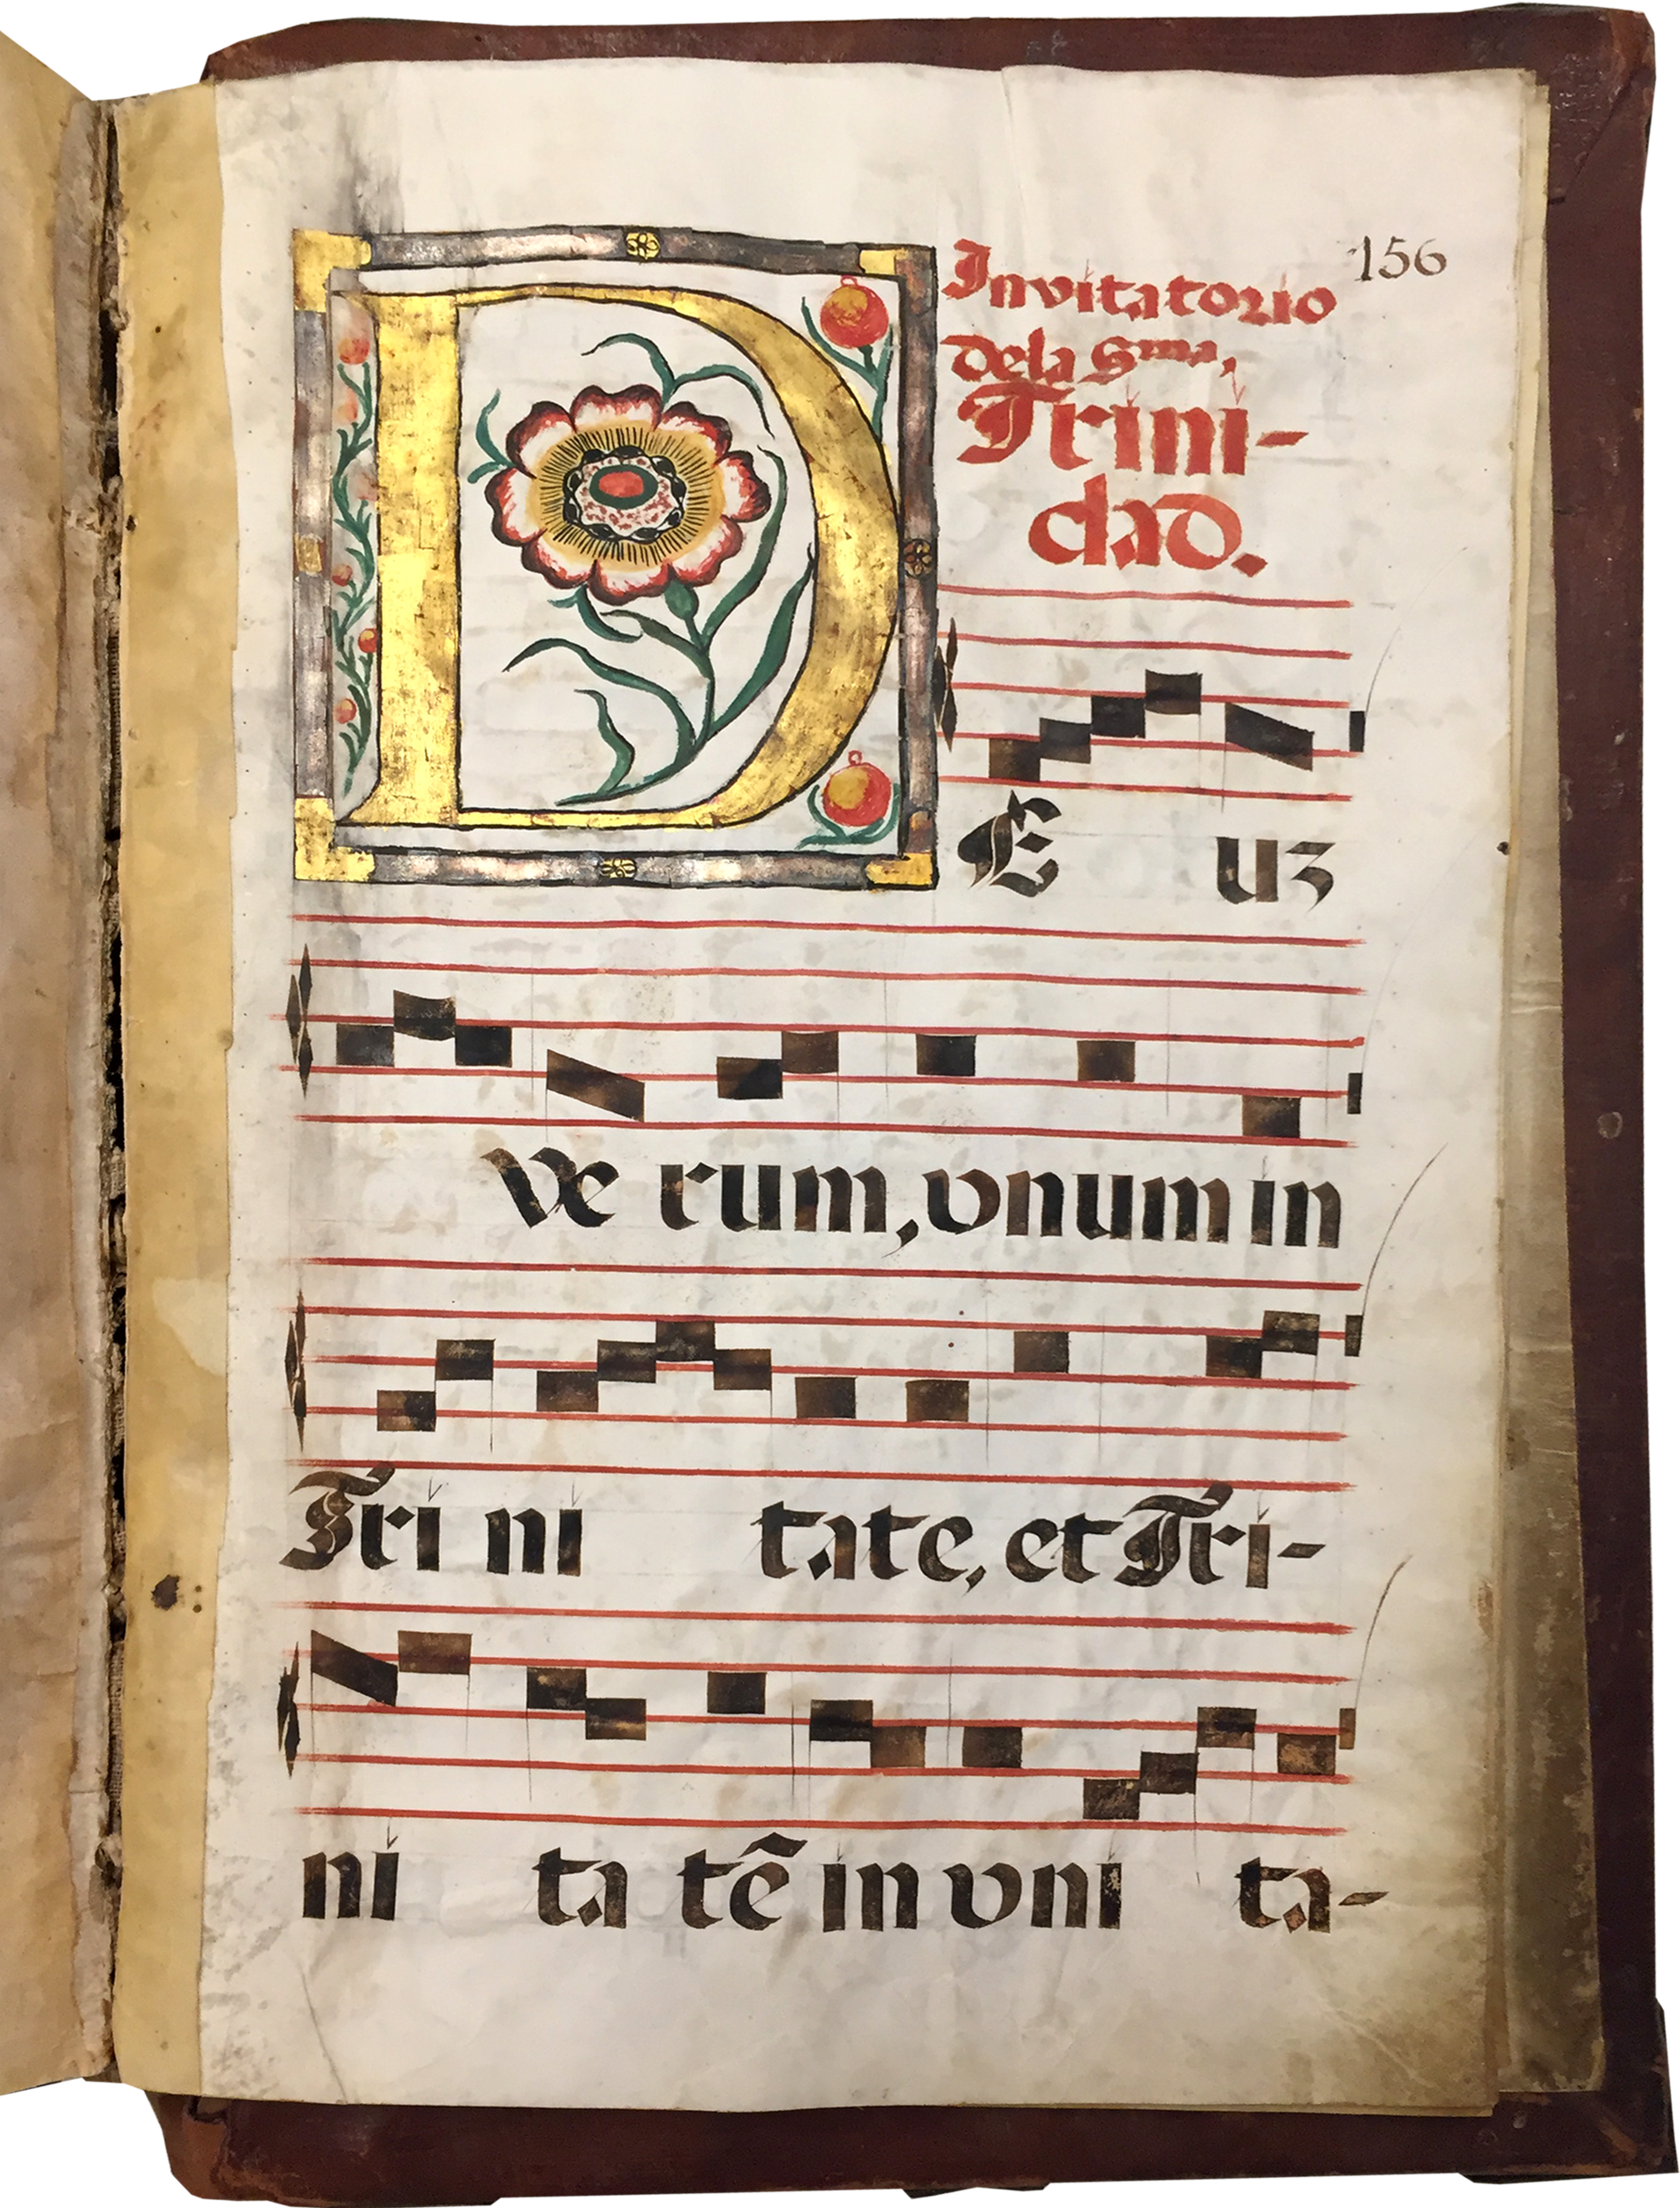 156
Invitatorio
dela Sma,
Trini-
dad.
DEuz
Ve rum, vnum in
Tri ni tate, et Tri-
ni ta tẽ in vni ta-